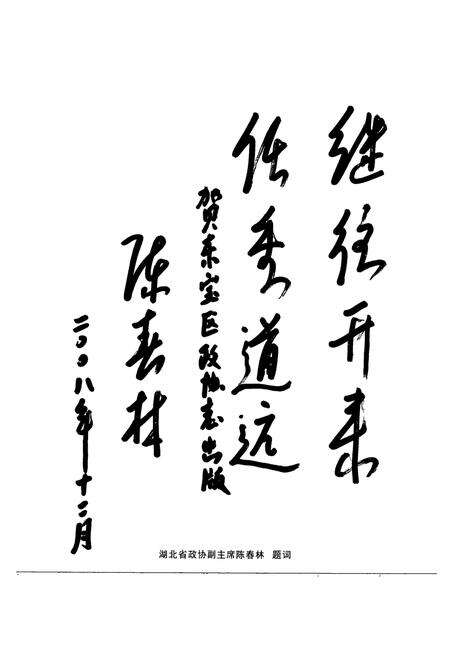 继往开来
任重道远
贺东宝区政协志出版
陈春林
二〇〇八年十二月
湖北省政协副主席陈春林 题词